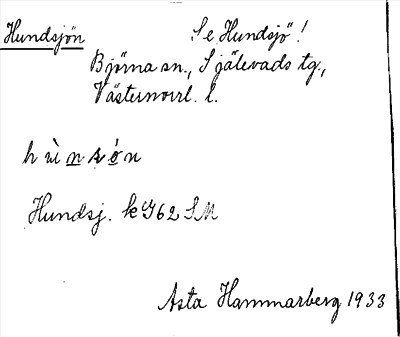 Hundsjön Se Hundsjö!
Björna sn., Själevads tg.,
Västernorrl. l.
hùnsón
Hundsj. k 962 SM
Asta Hammarberg 1933